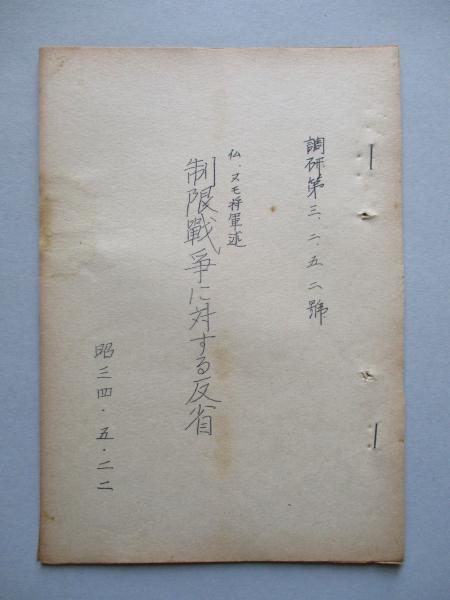 調研第三.二.五二號
仏.スモ将軍述
制限戰爭に対する反省
昭三四.五.二二